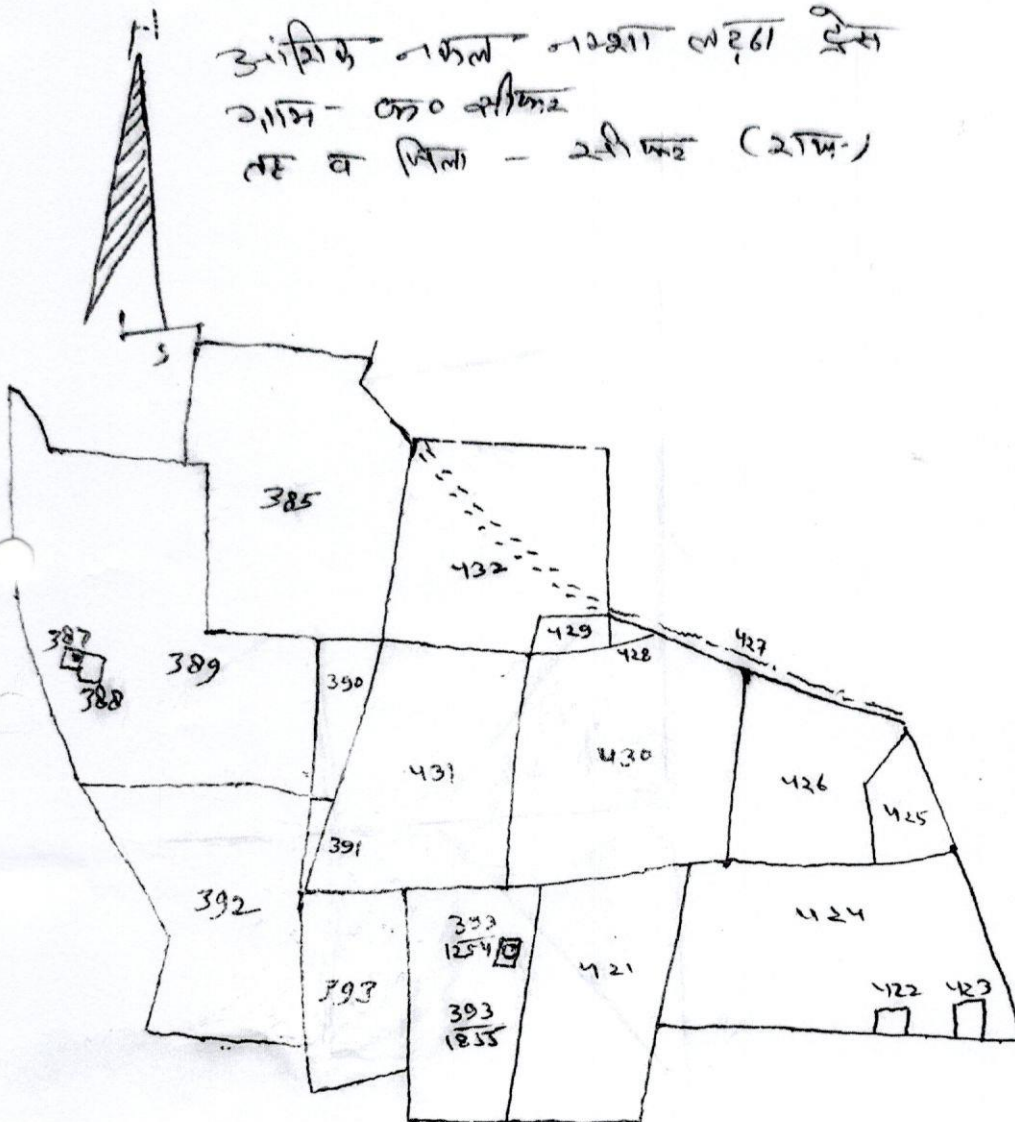 आंशिक नकल नक्शा लट्ठा ट्रेस
ग्राम - क० सीकर
तह व जिला - सीकर (राज.)
S
385
432
429
428
427
387
388
389
390
431
430
426
425
391
392
393
393
1254
393
1255
421
424
422
423